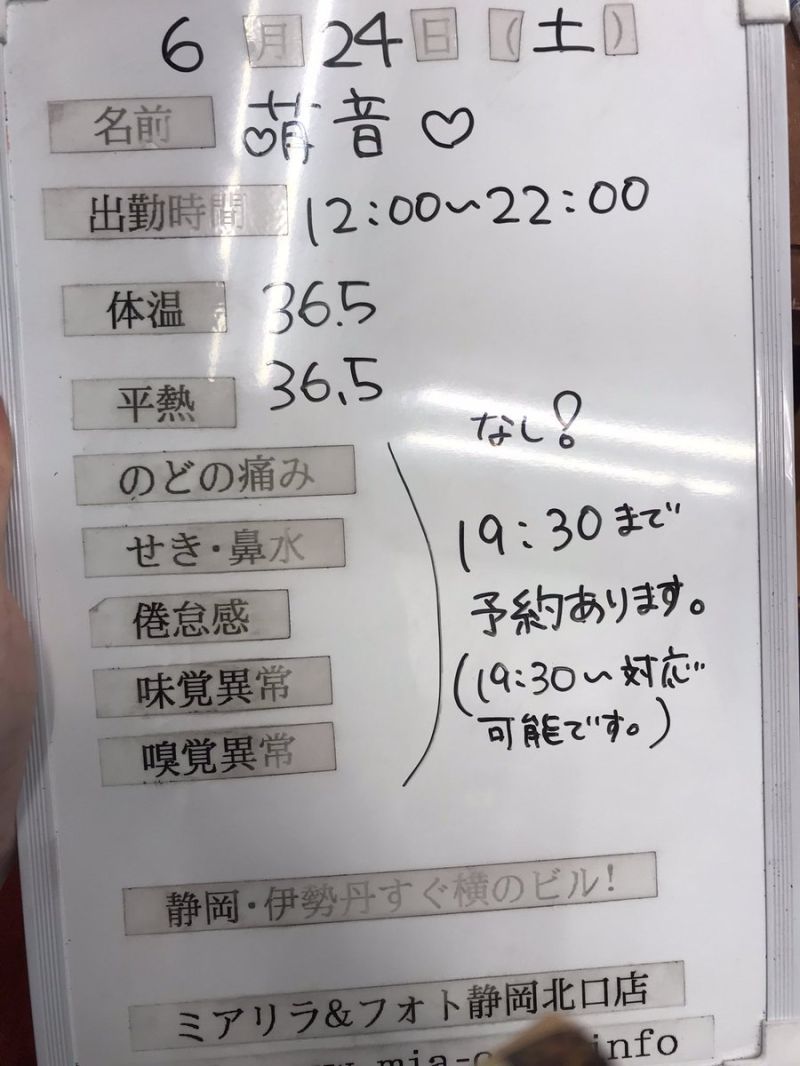 6月24日(土)
名前 萌音♡
出勤時間 12:00〜22:00
体温 36.5
平熱 36.5
なし!
のどの痛み
せき・鼻水
倦怠感
味覚異常
嗅覚異常
19:30まで
予約あります。
(19:30〜対応
可能です。)
静岡・伊勢丹すぐ横のビル!
ミアリラ&フォト静岡北口店
info